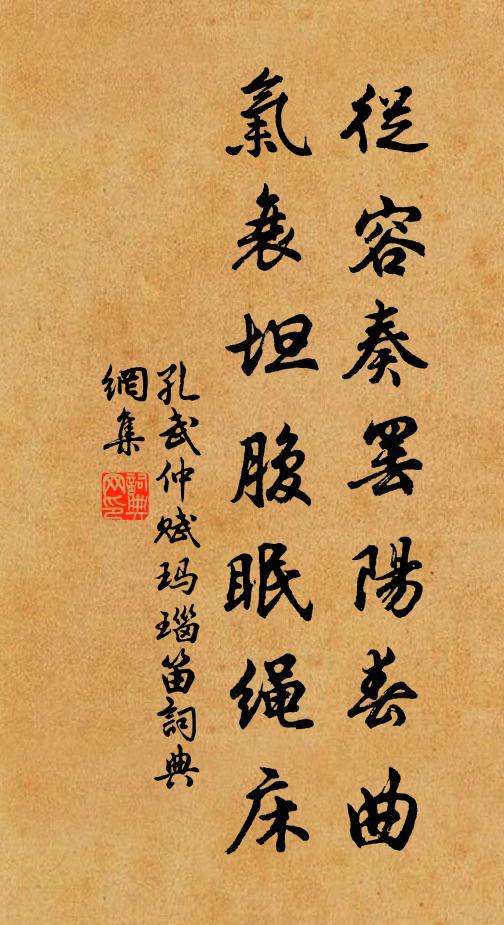 從容奏罷陽春曲
氣衰坦腹眠繩床
孔武仲賦玛瑙笛詞典
網集
詞典
网印